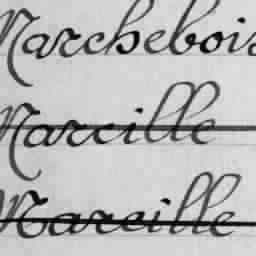 Marchebois
Marcille
Mareille